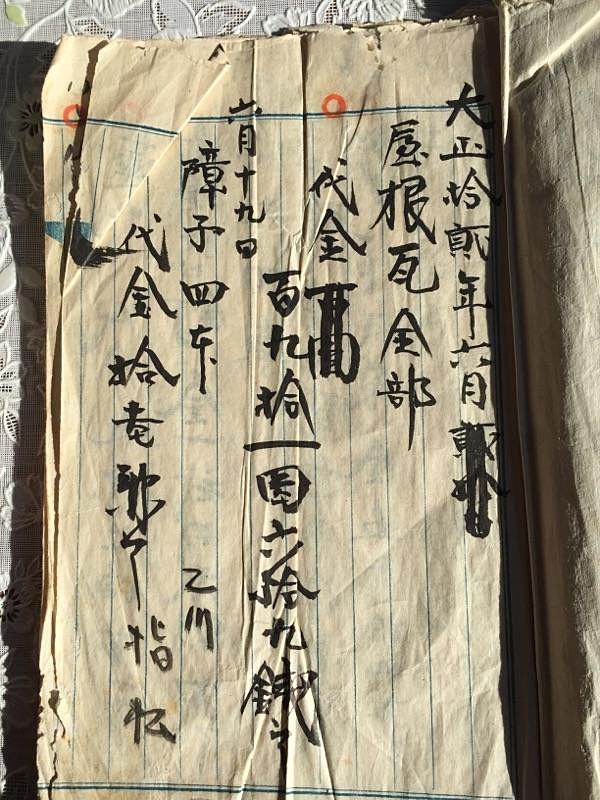 大正拾貳年六月
屋根瓦全部
代金
百九拾一圓六拾九錢
六月十九日
障子四本 乙川
代金拾